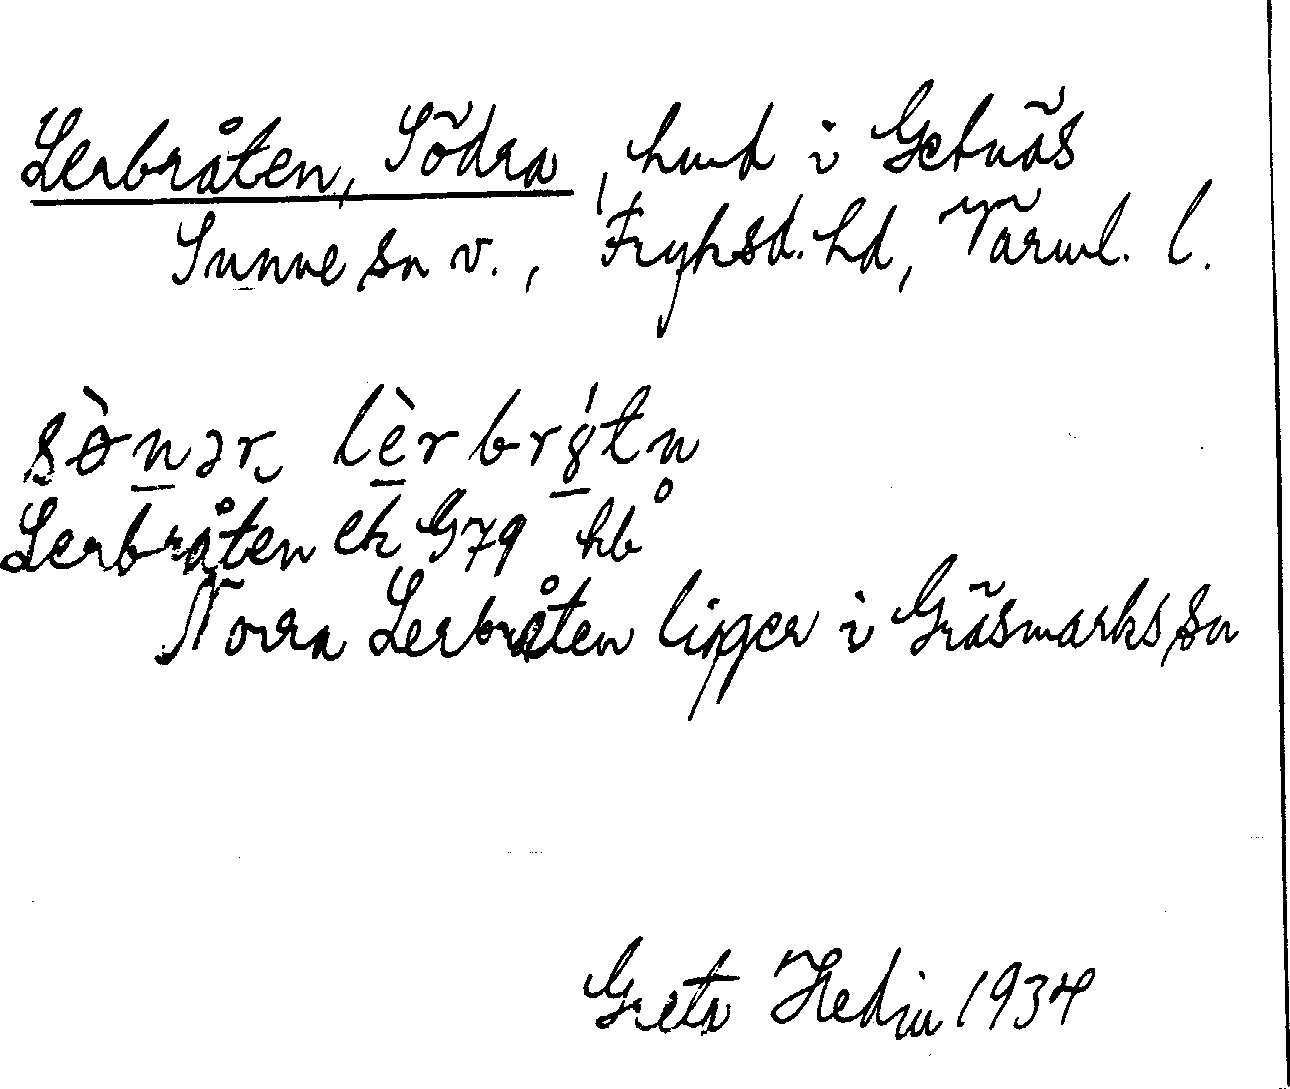 Lerbråten, Södra, hmd i Getnäs
Sunne sn v., Fryksd. hd, Värml. l.
sø̀nər lèrbrǫ́tn
Lerbråten ek G79 hb
Norra Lerbråten ligger i Gräsmarks sn
Greta Hedin 1934